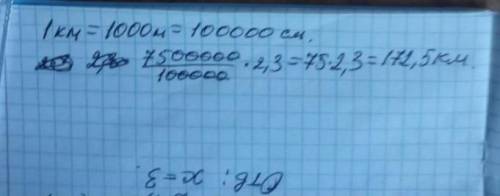 1км = 1000м = 100000 см.
7500000/100000 · 2,3 = 75·2,3 = 172,5 км.
Отв: x = 3